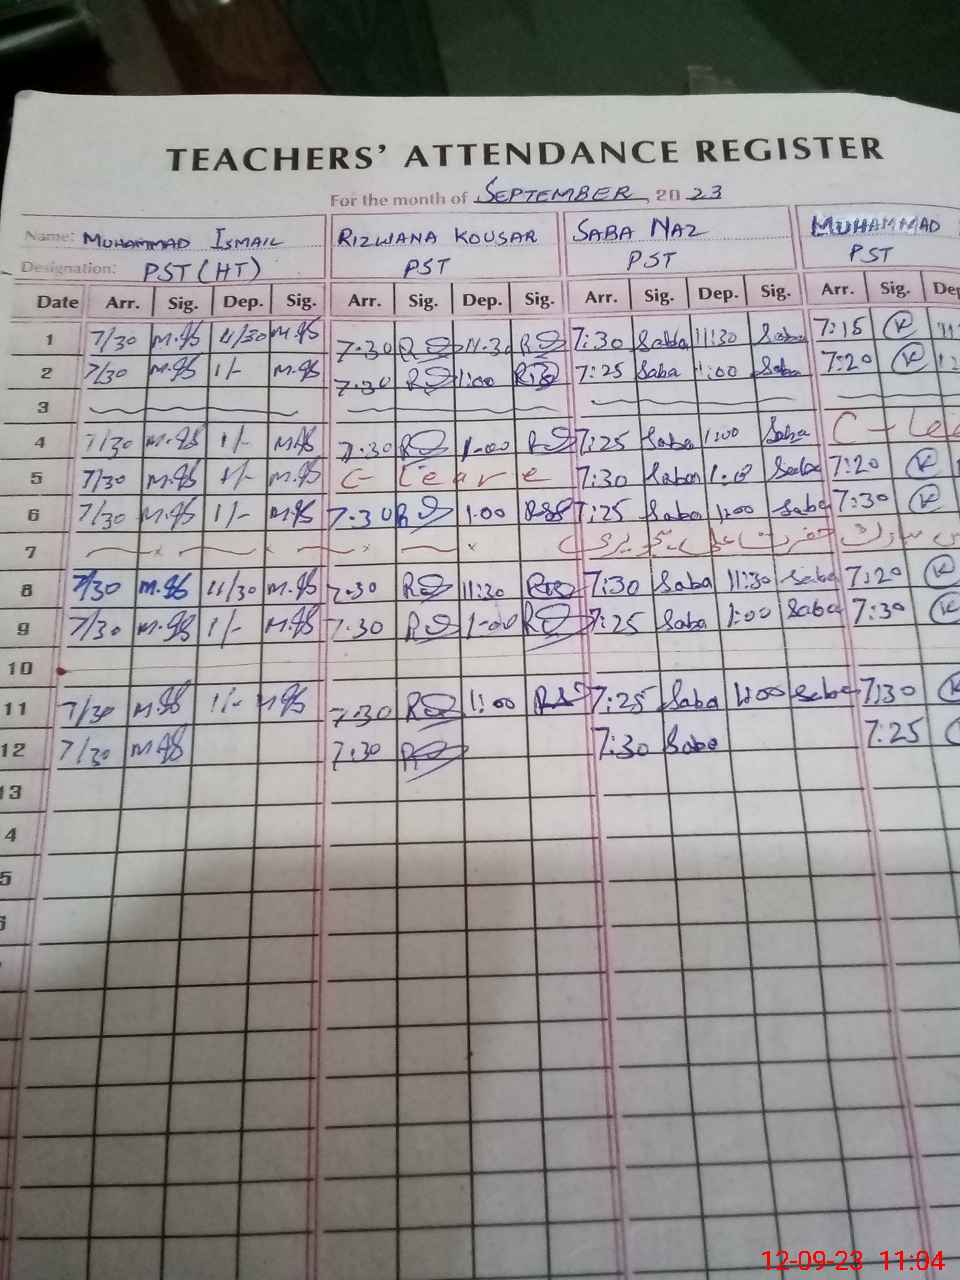 TEACHERS' ATTENDANCE REGISTER
For the month of SEPTEMBER, 2023
Name: MUHAMMAD ISMAIL RIZWANA KOUSAR SABA NAZ MUHAMMAD
Designation: PST (HT) PST PST PST
Date Arr. Sig. Dep. Sig. Arr. Sig. Dep. Sig. Arr. Sig. Dep. Sig. Arr. Sig. Dep
1 7/30 11/30 7.30 11.30 7:30 Saba 11:30 Saba 7:15 K
2 7/30 1/- 7.30 1:00 7:25 Saba 1:00 Saba 7:20 K
3
4 7/30 1/- 7.30 1-00 7:25 Saba 1:00 Saba C-Lea
5 7/30 1/- C-Leave 7:30 Saba Saba 7:20 K
6 7/30 1/- 7.30 1.00 7:25 Saba 1:00 Saba 7:30 K
7
8 7/30 11/30 7.30 11:30 7:30 Saba 11:30 Saba 7:20 K
9 7/30 1/- 7.30 1-00 7:25 Saba 1:00 Saba 7:30
10
11 7/30 1/- 7.30 1:00 7:25 Saba 1:00 Saba 7:30
12 7/30 7.30 7:30 Saba 7:25
13
4
5
12-09-23 11:04